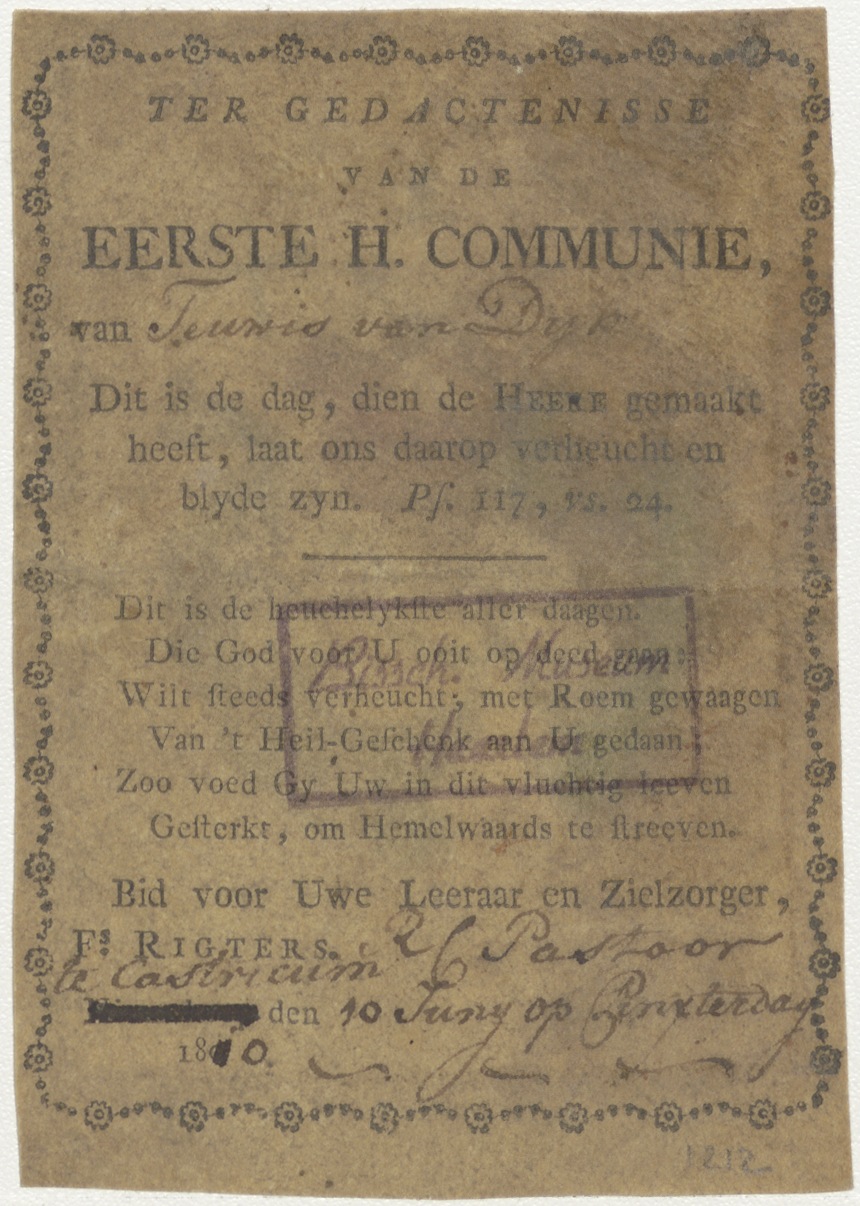 TER GEDACTENISSE
VAN DE
EERSTE H. COMMUNIE,
van Teuwis van Dyk
Dit is de dag, dien de HEERE gemaakt
heeft, laat ons daarop verheucht en
blyde zyn. Pſ. 117, vs. 24.
Dit is de heuchelykſte aller daagen.
Die God voor U ooit op deed gaan:
Wilt ſteeds verheucht, met Roem gewaagen
Van 't Heil-Geſchenk aan U gedaan;
Zoo voed Gy Uw in dit vluchtig leeven
Geſterkt, om Hemelwaards te ſtreeven.
Bissch. Museum
Haarlem
Bid voor Uwe Leeraar en Zielzorger,
Fs: RIGTERS. Pastoor
te Castricum
den 10 Juny op Pinxterdag
1810.
1212